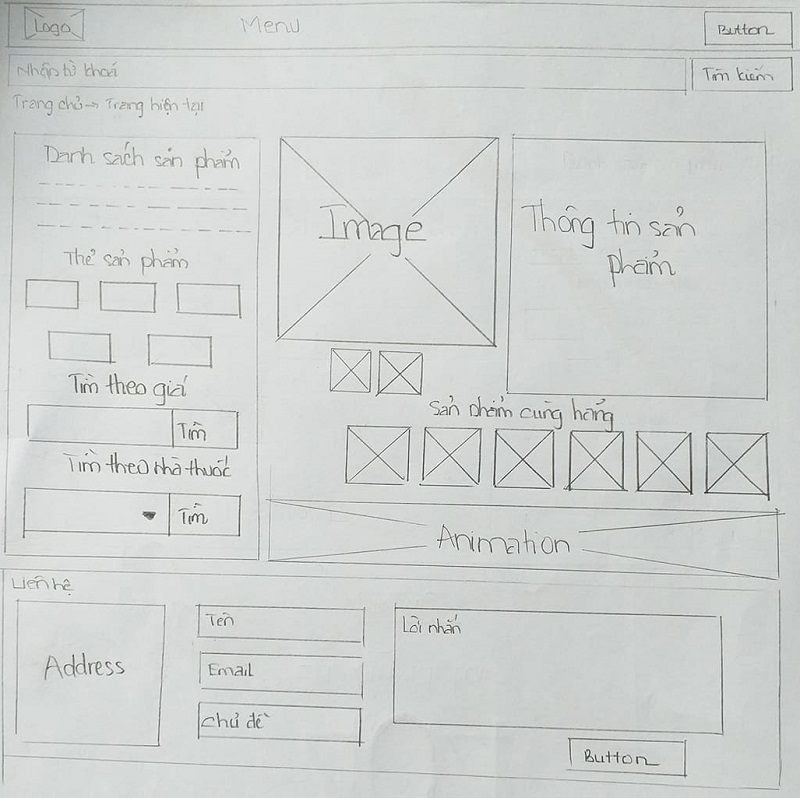 Logo
Menu
Button
Nhập từ khoá
Tìm kiếm
Trang chủ → Trang hiện tại
Danh sách sản phẩm
Thẻ sản phẩm
Tìm theo giá
Tìm
Tìm theo nhà thuốc
Tìm
Image
Thông tin sản
phẩm
Sản phẩm cùng hãng
Animation
Liên hệ
Address
Tên
Email
Chủ đề
Lời nhắn
Button